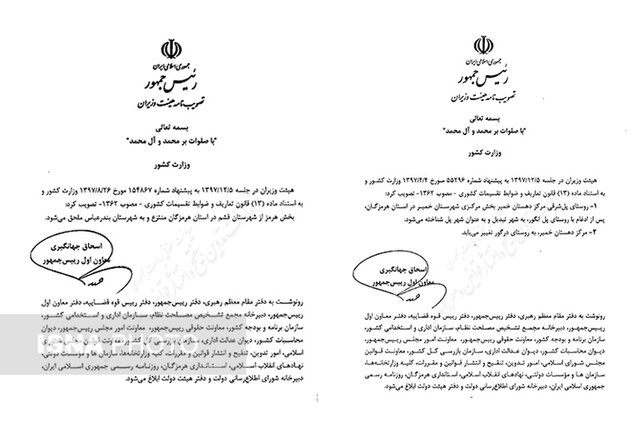 جمهوری اسلامی ایران
رئیس جمهور
تصویب نامه هیئت وزیران
بسمه تعالی
"با صلوات بر محمد و آل محمد"
وزارت کشور
هیئت وزیران در جلسه ۱۳۹۷/۱۲/۵ به پیشنهاد شماره ۵۵۲۹۶ مورخ ۱۳۹۷/۴/۴ وزارت کشور و
به استناد ماده (۱۳) قانون تعاریف و ضوابط تقسیمات کشوری - مصوب ۱۳۶۲- تصویب کرد:
۱- روستای پل‌شرقی مرکز دهستان خمیر بخش مرکزی شهرستان خمیر در استان هرمزگان،
پس از ادغام با روستای پل انگور، به شهر تبدیل و به عنوان شهر پل شناخته می‌شود.
۲- مرکز دهستان خمیر، به روستای درگور تغییر می‌یابد.
اسحاق جهانگیری
معاون اول رییس‌جمهور
رونوشت به دفتر مقام معظم رهبری، دفتر رییس‌جمهور، دفتر رییس قوه قضاییه، دفتر معاون اول
رییس‌جمهور، دبیرخانه مجمع تشخیص مصلحت نظام، سازمان اداری و استخدامی کشور،
سازمان برنامه و بودجه کشور، معاونت حقوقی رییس‌جمهور، معاونت امور مجلس رییس‌جمهور،
دیوان محاسبات کشور، دیوان عدالت اداری، سازمان بازرسی کل کشور، معاونت قوانین
مجلس شورای اسلامی، امور تدوین، تنقیح و انتشار قوانین و مقررات، کلیه وزارتخانه‌ها،
سازمان ها و مؤسسات دولتی، نهادهای انقلاب اسلامی، استانداری هرمزگان، روزنامه رسمی
جمهوری اسلامی ایران، دبیرخانه شورای اطلاع‌رسانی دولت و دفتر هیئت دولت ابلاغ می‌شود.
جمهوری اسلامی ایران
رئیس جمهور
تصویب نامه هیئت وزیران
بسمه تعالی
"با صلوات بر محمد و آل محمد"
وزارت کشور
هیئت وزیران در جلسه ۱۳۹۷/۱۲/۵ به پیشنهاد شماره ۱۵۴۸۶۷ مورخ ۱۳۹۷/۸/۲۶ وزارت کشور و
به استناد ماده (۱۳) قانون تعاریف و ضوابط تقسیمات کشوری - مصوب ۱۳۶۲- تصویب کرد:
بخش هرمز از شهرستان قشم در استان هرمزگان منتزع و به شهرستان بندرعباس ملحق می‌شود.
اسحاق جهانگیری
معاون اول رییس‌جمهور
رونوشت به دفتر مقام معظم رهبری، دفتر رییس‌جمهور، دفتر رییس قوه قضاییه، دفتر معاون اول
رییس‌جمهور، دبیرخانه مجمع تشخیص مصلحت نظام، سازمان اداری و استخدامی کشور،
سازمان برنامه و بودجه کشور، معاونت حقوقی رییس‌جمهور، معاونت امور مجلس رییس‌جمهور، دیوان
محاسبات کشور، دیوان عدالت اداری، سازمان بازرسی کل کشور، معاونت قوانین مجلس شورای
اسلامی، امور تدوین، تنقیح و انتشار قوانین و مقررات، کلیه وزارتخانه‌ها، سازمان ها و مؤسسات دولتی،
نهادهای انقلاب اسلامی، استانداری هرمزگان، روزنامه رسمی جمهوری اسلامی ایران،
دبیرخانه شورای اطلاع‌رسانی دولت و دفتر هیئت دولت ابلاغ می‌شود.
ISNA PHOTO